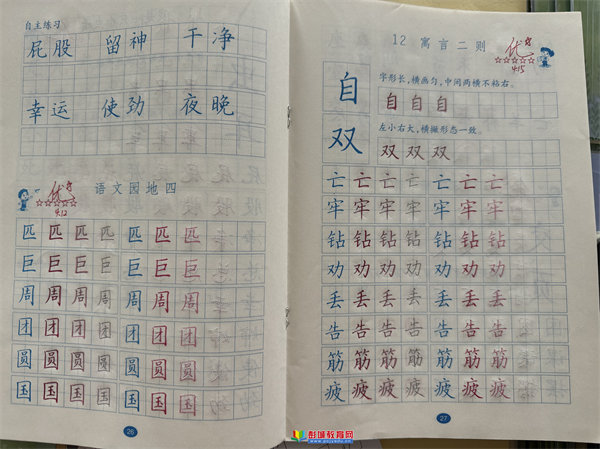 自主练习
屁股 留神 干净
幸运 使劲 夜晚
优
4.12
语文园地四
匹匹匹匹匹匹匹
巨巨巨巨巨巨巨
周周周周周周周
团团团团团团团
圆圆圆圆圆圆圆
国国国国国国国
26
12 寓言二则
优
4.15
自
字形长,横画匀,中间两横不粘右。
自自自
双
左小右大,横撇形态一致。
双双双
亡亡亡亡亡亡亡
牢牢牢牢牢牢牢
钻钻钻钻钻钻钻
劝劝劝劝劝劝劝
丢丢丢丢丢丢丢
告告告告告告告
筋筋筋筋筋筋筋
疲疲疲疲疲疲疲
27
彭城教育网